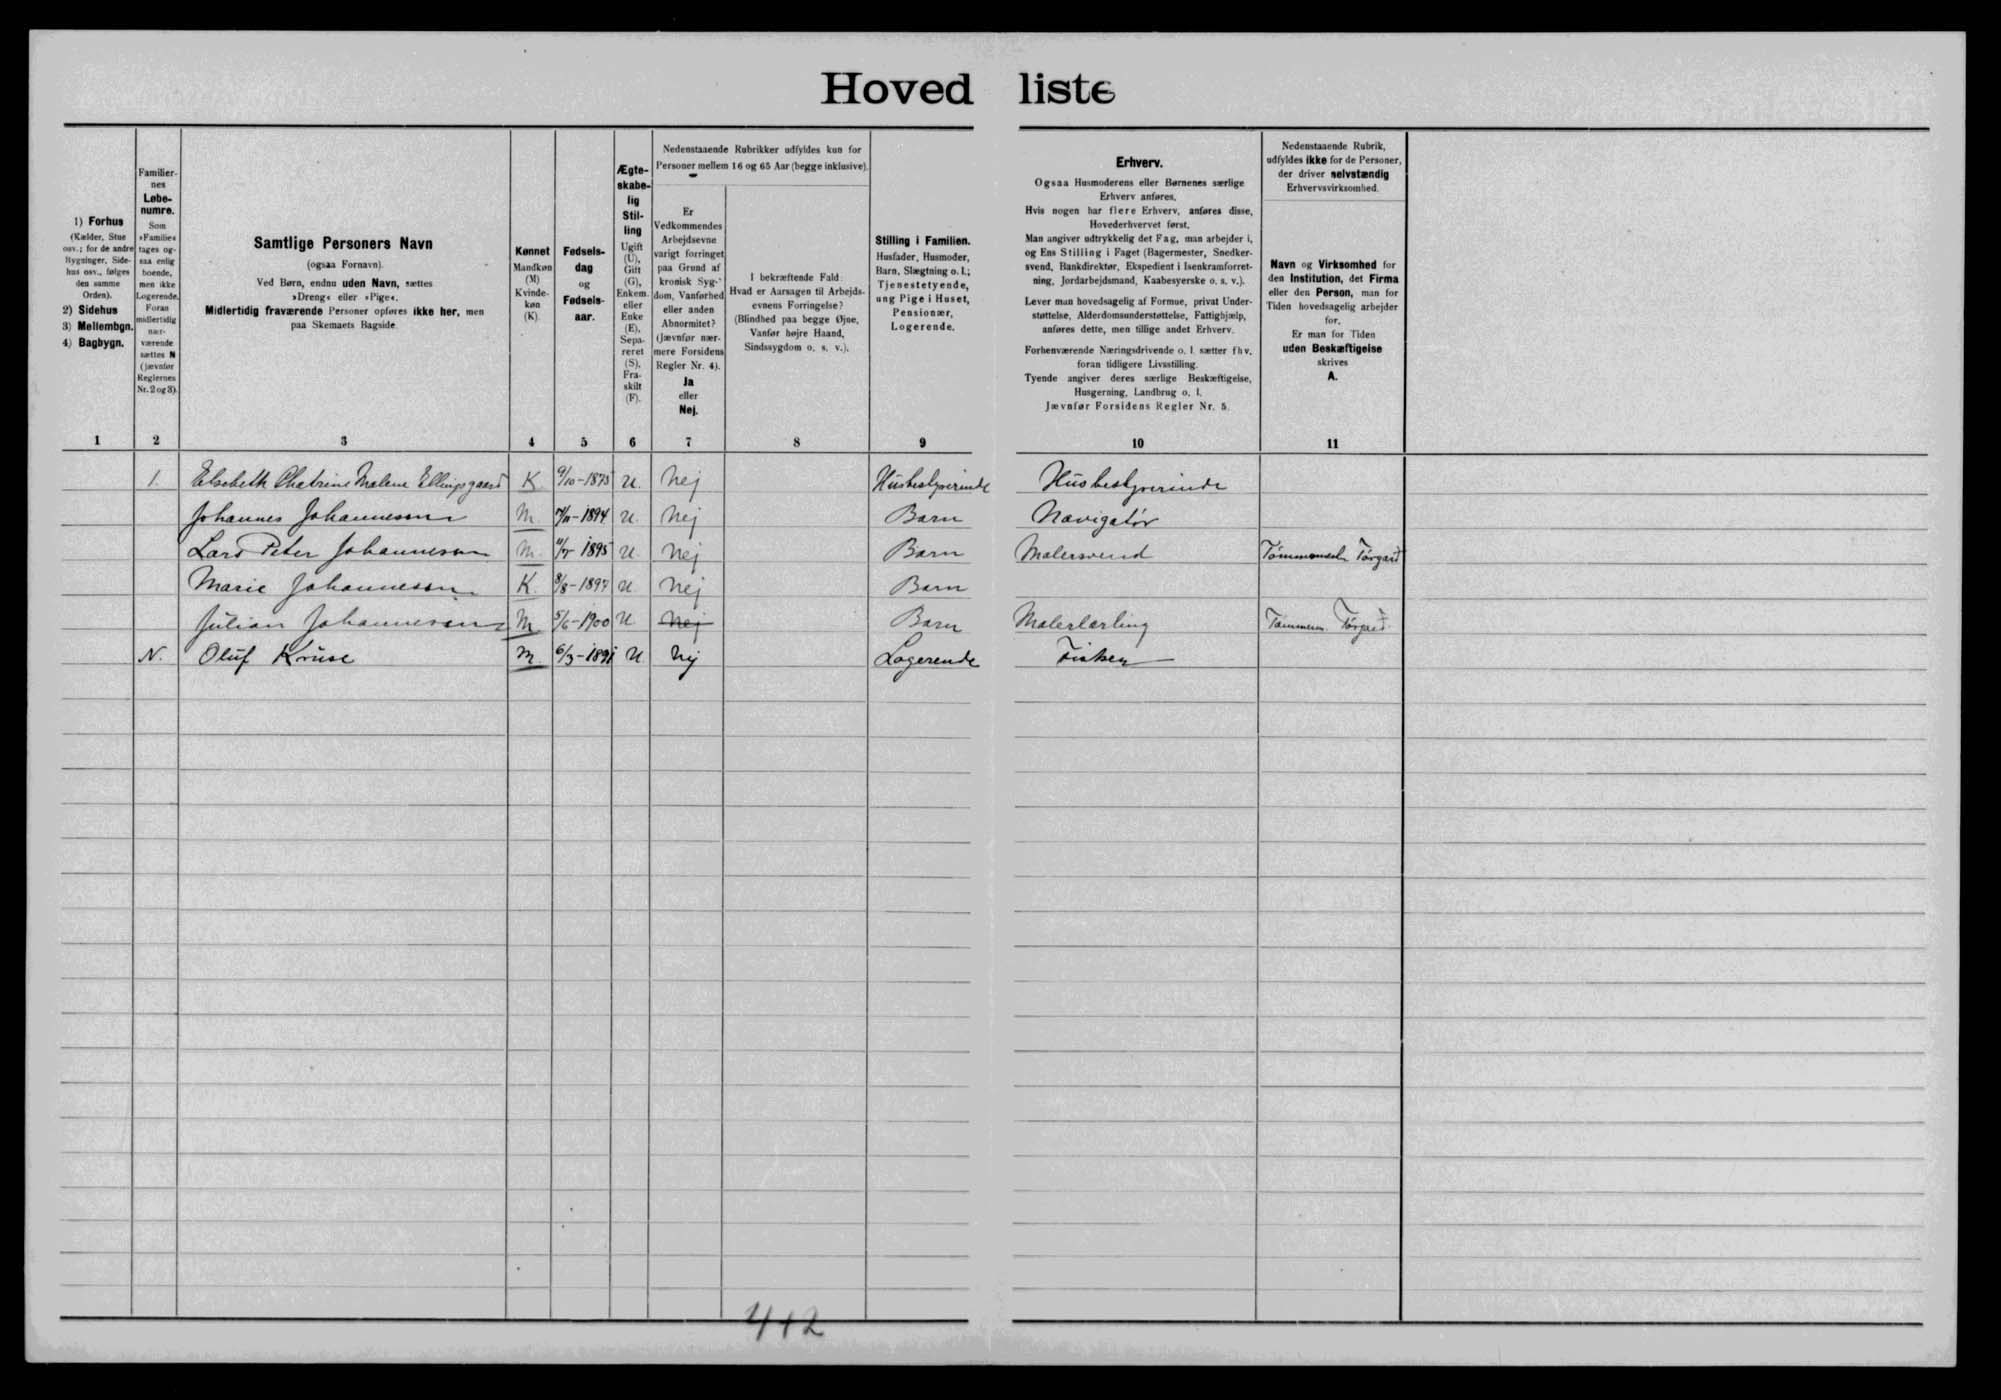 Hovedliste
1) Forhus
(Kælder, Stue
osv.; for de andre
Bygninger, Side-
hus osv., følges
den samme
Orden).
2) Sidehus
3) Mellembgn.
4) Bagbygn.
1
Familier-
nes
Løbe-
numre.
Som
»Familie«
tages og-
saa enlig
boende,
men ikke
Logerende.
Foran
midlertidig
nær-
værende
sættes N
(jævnfør
Reglernes
Nr. 2 og 3).
2
Samtlige Personers Navn
(ogsaa Fornavn).
Ved Børn, endnu uden Navn, sættes
»Dreng« eller »Pige«.
Midlertidig fraværende Personer opføres ikke her, men
paa Skemaets Bagside.
3
Kønnet
Mandkøn
(M)
Kvinde-
køn
(K).
4
Fødsels-
dag
og
Fødsels-
aar.
5
Ægte-
skabe-
lig
Stil-
ling
Ugift
(U),
Gift
(G),
Enkem.
eller
Enke
(E),
Sepa-
reret
(S),
Fra-
skilt
(F).
6
Nedenstaaende Rubrikker udfyldes kun for
Personer mellem 16 og 65 Aar (begge inklusive).
Er
Vedkommendes
Arbejdsevne
varigt forringet
paa Grund af
kronisk Syg-
dom, Vanførhed
eller anden
Abnormitet?
(Jævnfør nær-
mere Forsidens
Regler Nr. 4).
Ja
eller
Nej.
7
I bekræftende Fald:
Hvad er Aarsagen til Arbejds-
evnens Forringelse?
(Blindhed paa begge Øjne,
Vanfør højre Haand,
Sindssygdom o. s. v.).
8
Stilling i Familien.
Husfader, Husmoder,
Barn, Slægtning o. l.;
Tjenestetyende,
ung Pige i Huset,
Pensionær,
Logerende.
9
Erhverv.
Ogsaa Husmoderens eller Børnenes særlige
Erhverv anføres.
Hvis nogen har flere Erhverv, anføres disse,
Hovederhvervet først.
Man angiver udtrykkelig det Fag, man arbejder i,
og Ens Stilling i Faget (Bagermester, Snedker-
svend, Bankdirektør, Ekspedient i Isenkramforret-
ning, Jordarbejdsmand, Kaabesyerske o. s. v.).
Lever man hovedsagelig af Formue, privat Under-
støttelse, Alderdomsunderstøttelse, Fattighjælp,
anføres dette, men tillige andet Erhverv.
Forhenværende Næringsdrivende o. l. sætter fhv.
foran tidligere Livsstilling.
Tyende angiver deres særlige Beskæftigelse,
Husgerning, Landbrug o. l.
Jævnfør Forsidens Regler Nr. 5.
10
Nedenstaaende Rubrik,
udfyldes ikke for de Personer,
der driver selvstændig
Erhvervsvirksomhed.
Navn og Virksomhed for
den Institution, det Firma
eller den Person, man for
Tiden hovedsagelig arbejder
for.
Er man for Tiden
uden Beskæftigelse
skrives
A.
11
1. Elsebeth Chatrine Malene Ellingsgaard K. 9/10-1875 U. Nej Husbestyrerinde Husbestyrerinde
Johannes Johannesen M. 1894 U. Nej Barn Navigatør
Lars Peter Johannesen M. 1895 U Nej Barn Malersvend Tórgard
Marie Johannesen K. 8/8-1897 U. Nej Barn
Julian Johannesen M 5/6-1900 U Nej Barn Malerlærling Tórgard
N. Oluf Krúse M 6/3-1891 U Nej Logerende Fisker
412